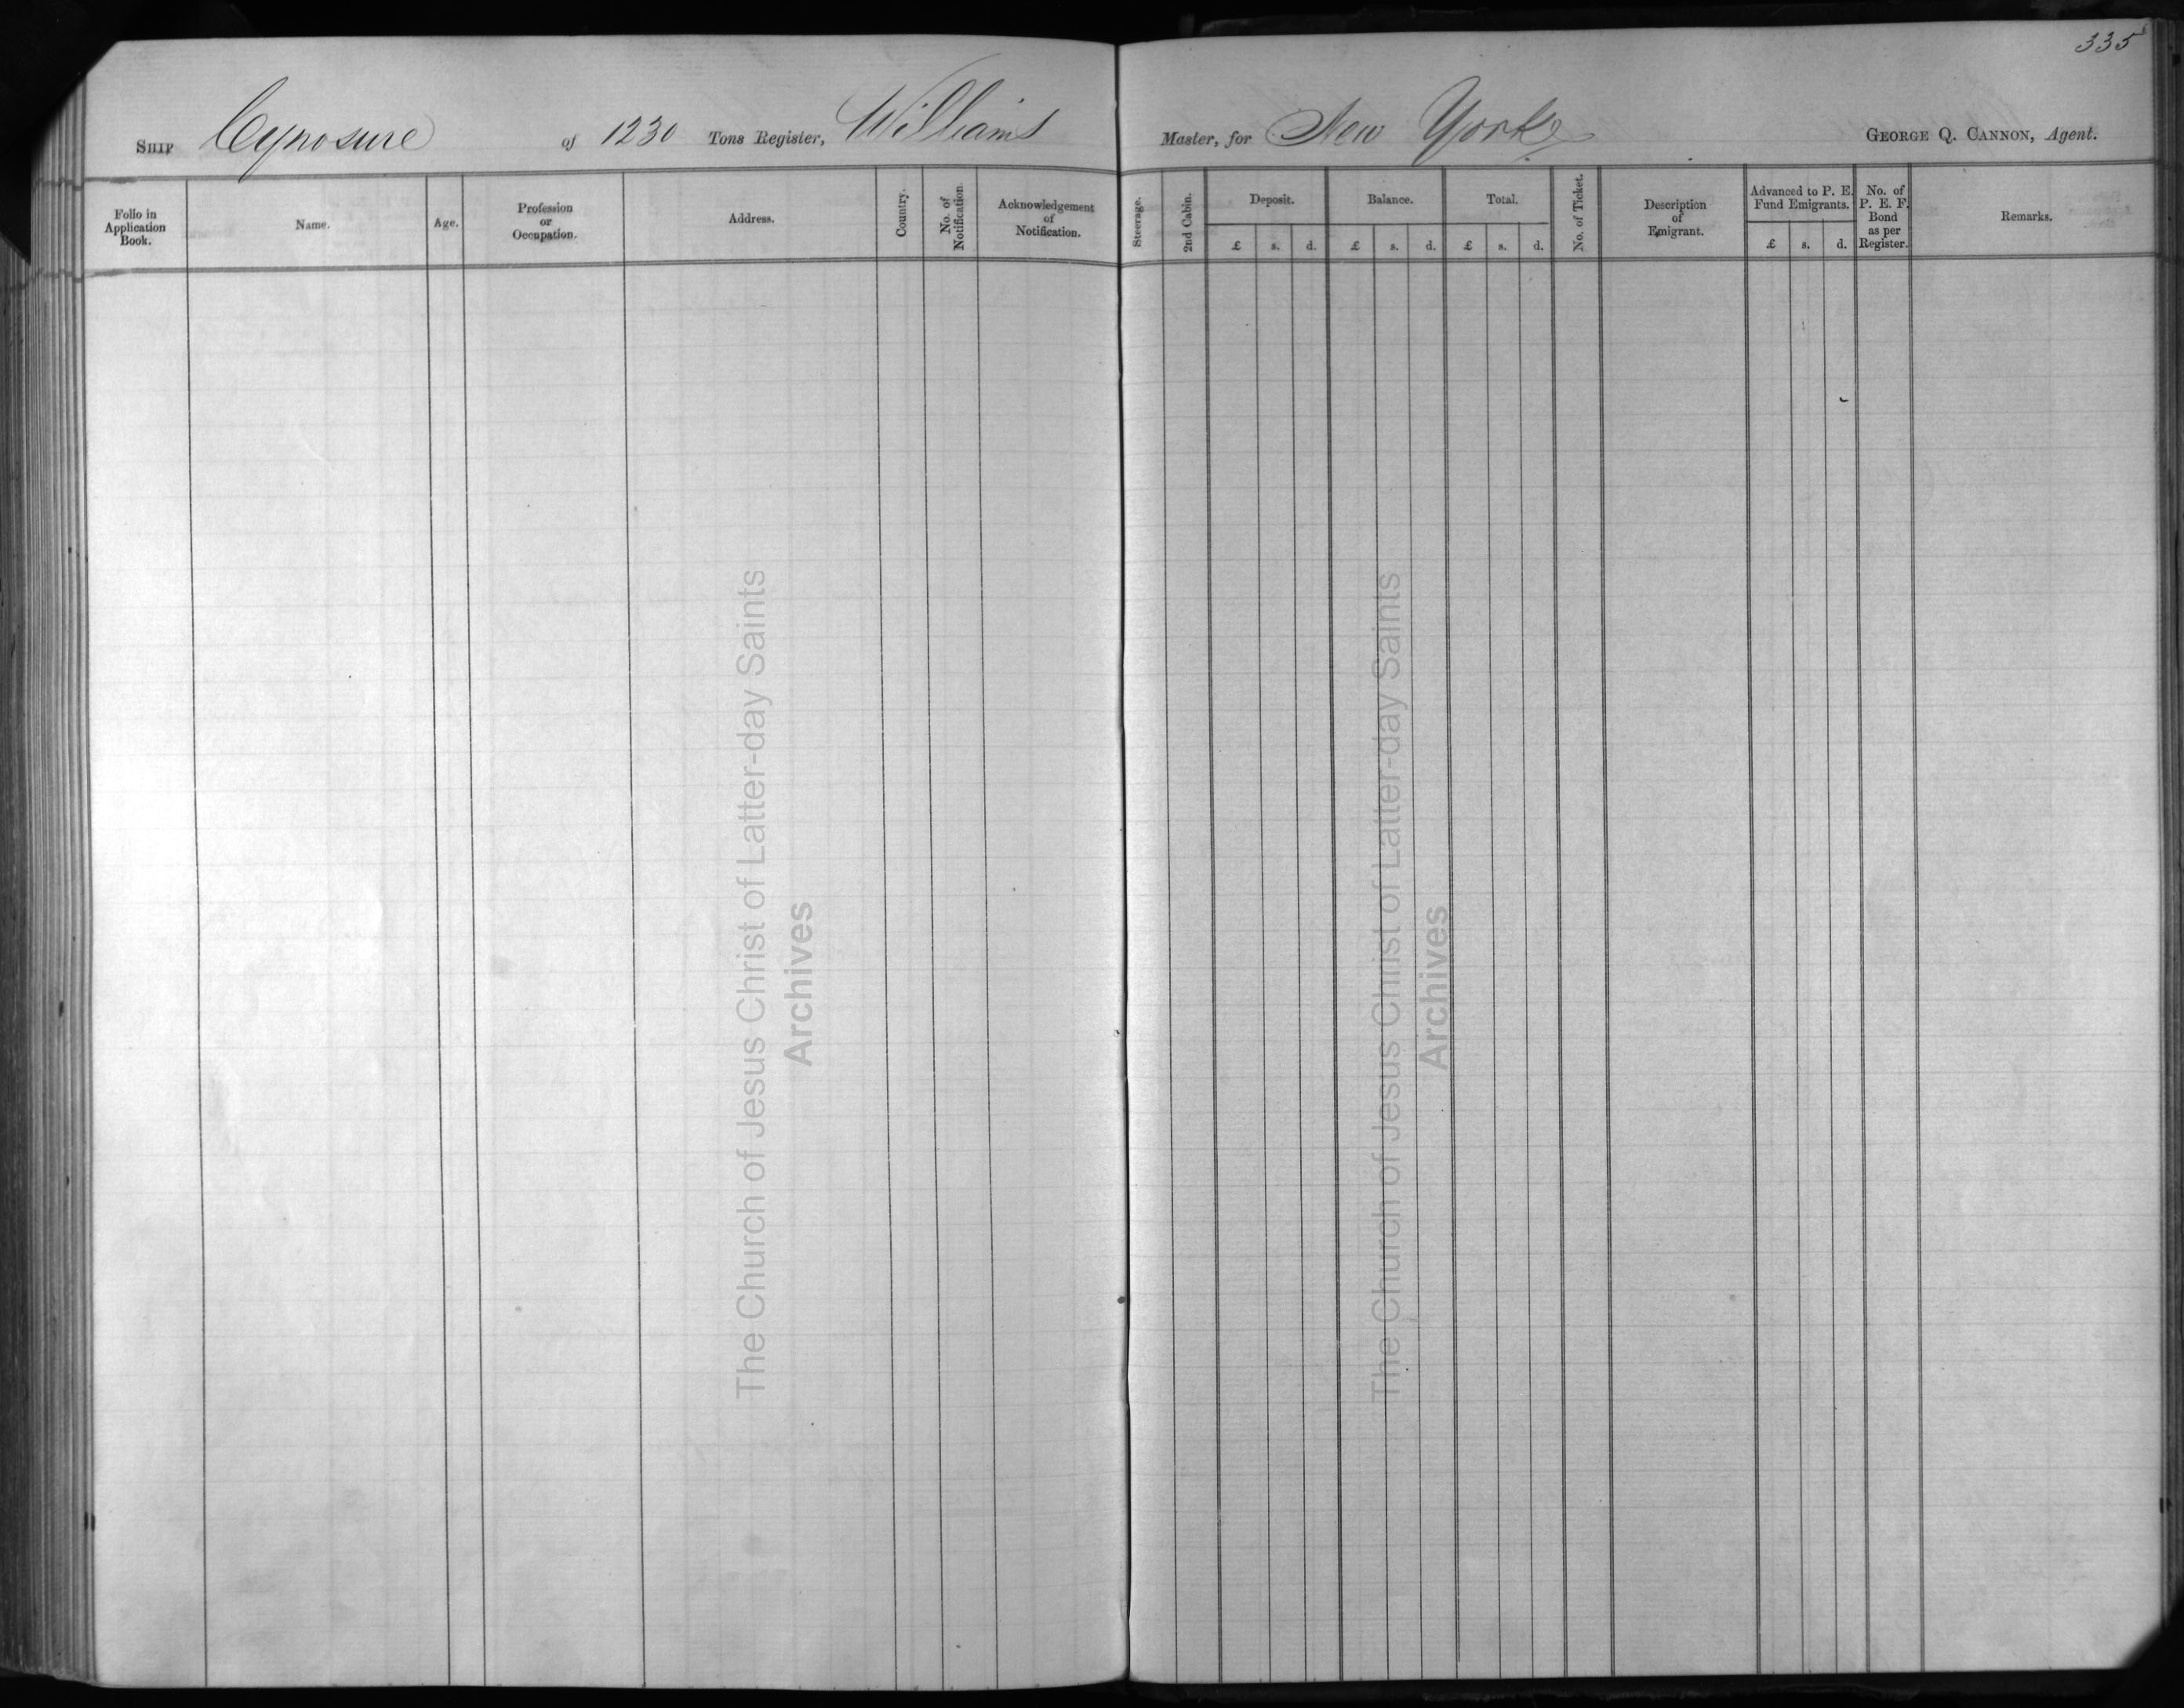 335
SHIP Cynosure of 1230 Tons Register, Williams Master, for New York GEORGE Q. CANNON, Agent.
Folio in Application Book.
Name.
Age.
Profession or Occupation.
Address.
Country.
No. of Notification.
Acknowledgement of Notification.
Steerage.
2nd Cabin.
Deposit.
£ s. d.
Balance.
£ s. d.
Total.
£ s. d.
No. of Ticket.
Description of Emigrant.
Advanced to P. E. Fund Emigrants.
£ s. d.
No. of P. E. F. Bond as per Register.
Remarks.
The Church of Jesus Christ of Latter-day Saints
Archives
The Church of Jesus Christ of Latter-day Saints
Archives